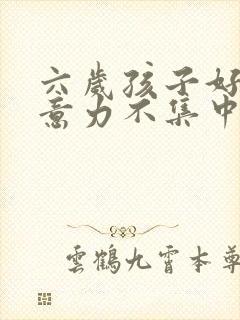 六歲孩子好
意力不集中
雲鶴九霄本尊